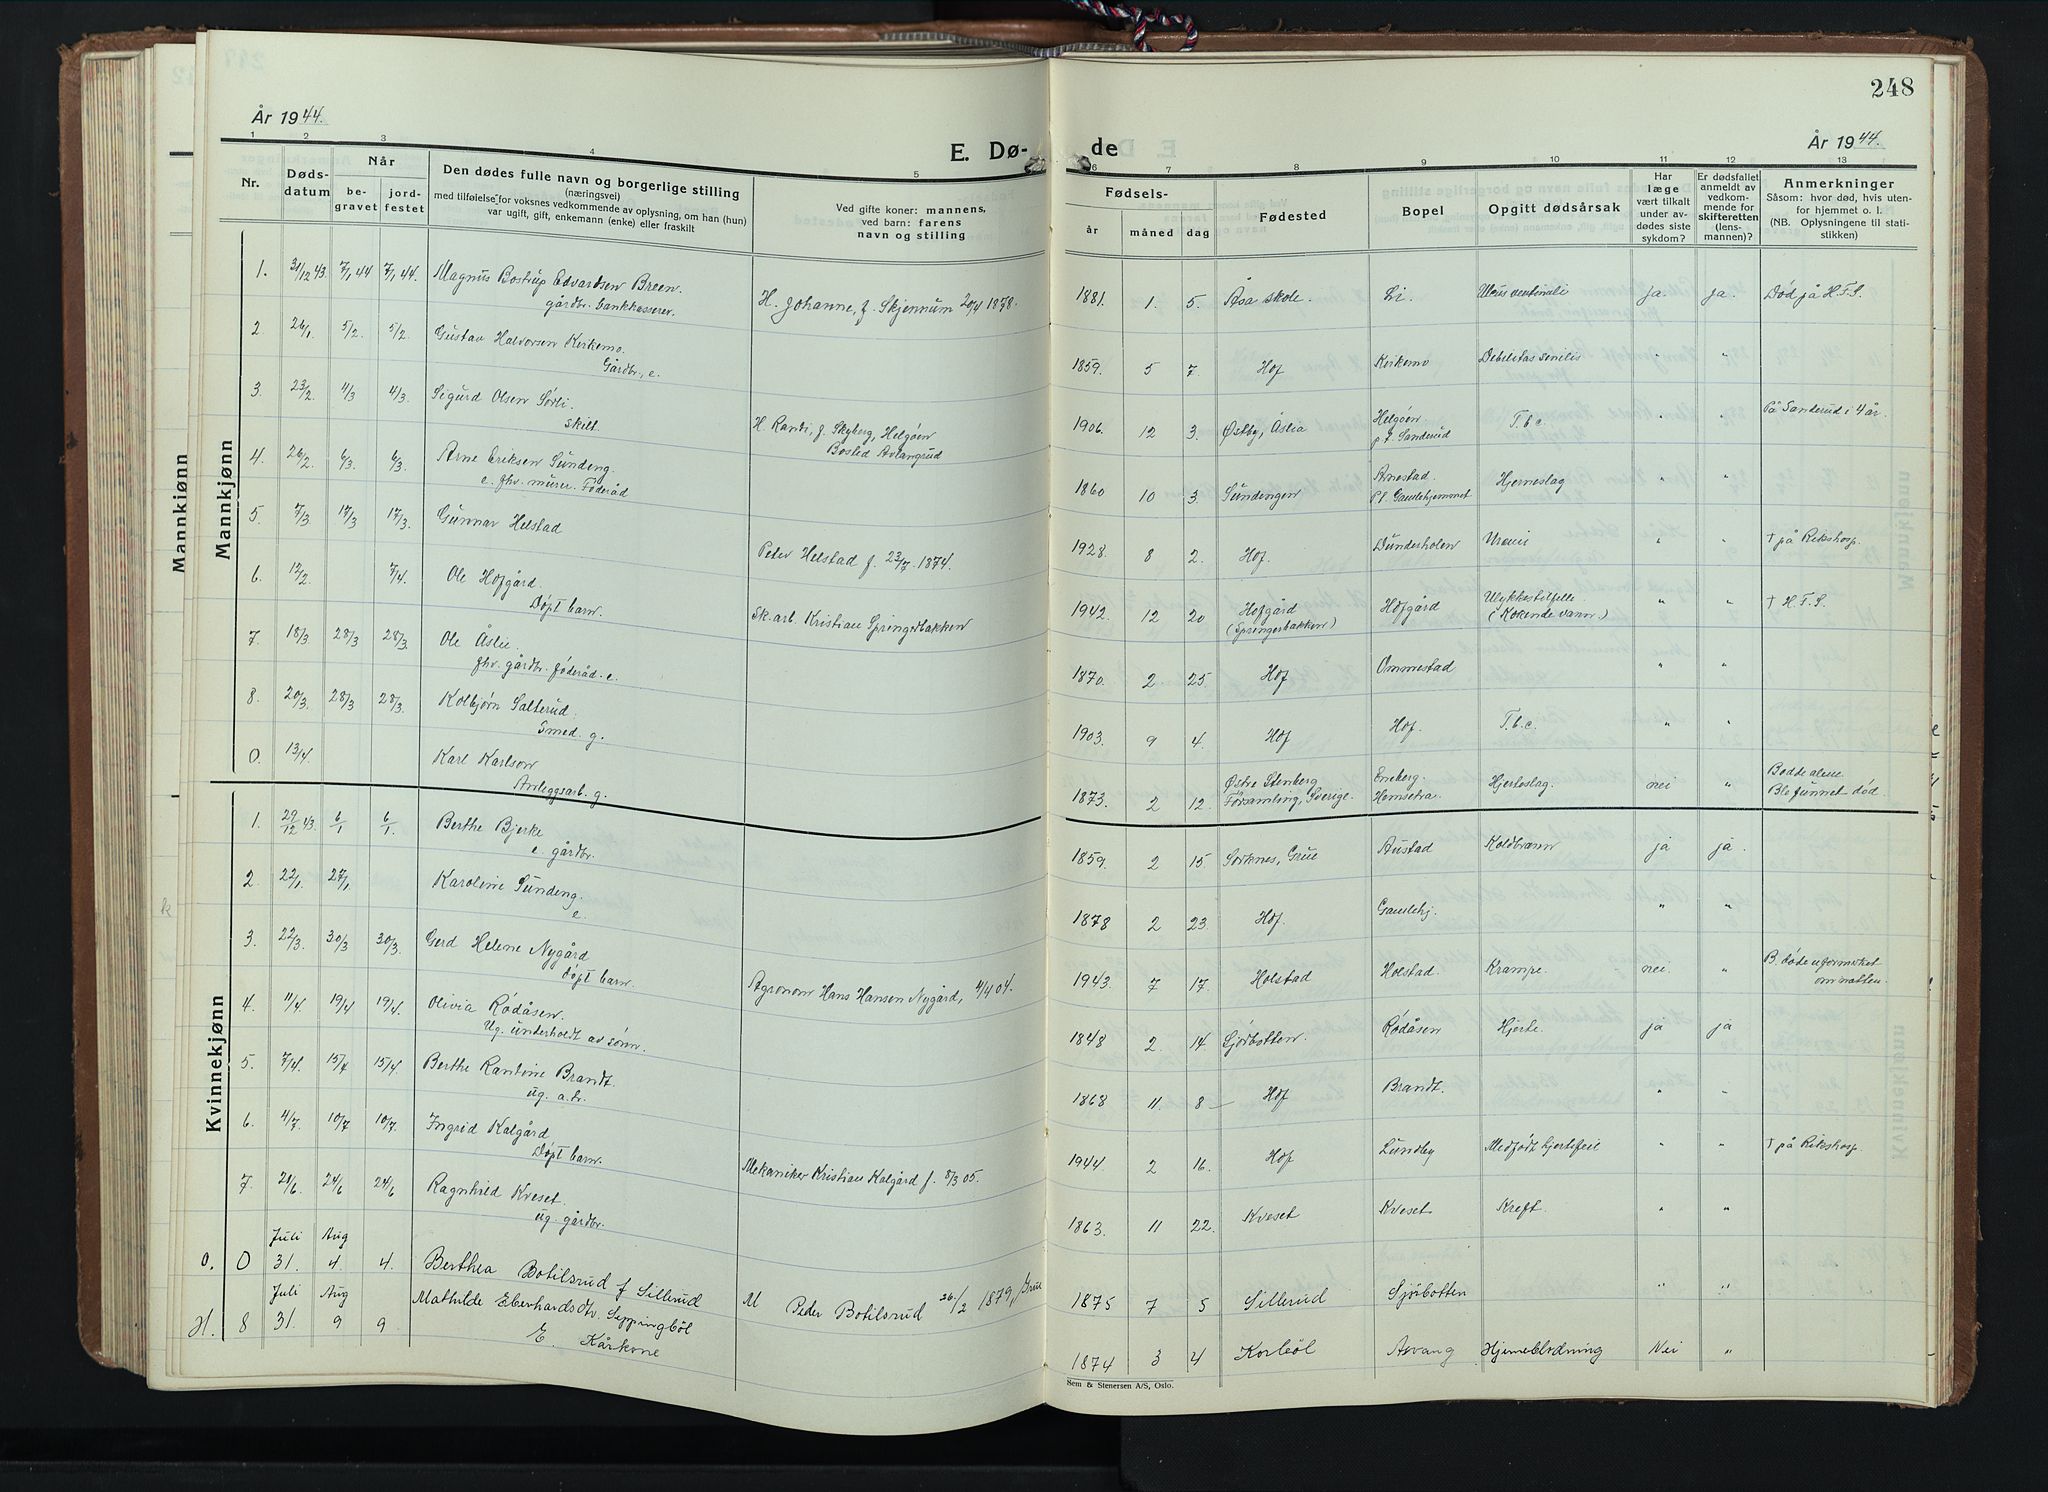 248
År 1944.
E. Dø-
de
År 1944.
1 2 3 4 5 6 7 8 9 10 11 12 13
Nr.
Døds-
datum
Når
be-
gravet
jord-
festet
Den dødes fulle navn og borgerlige stilling
(næringsvei)
med tilføielse for voksnes vedkommende av oplysning, om han (hun)
var ugift, gift, enkemann (enke) eller fraskilt
Ved gifte koner: mannens,
ved barn: farens
navn og stilling
Fødsels-
år måned dag
Fødested
Bopel
Opgitt dødsårsak
Har
læge
vært tilkalt
under av-
dødes siste
sykdom?
Er dødsfallet
anmeldt av
vedkom-
mende for
skifteretten
(lens-
mannen)?
Anmerkninger
Såsom: hvor død, hvis uten-
for hjemmet o. l.
(NB. Oplysningene til stati-
stikken)
Mannkjønn
Mannkjønn
1. 31/12 43. 7/1 44 7/1 44. Magnus Bostrup Edvardsen Breen.
gårdbr. bankkasserer. H. Johanne, f. Skjennum 20/4 1878. 1881. 1. 5. Åsa skole. Li. Ulcus ventriculi ja. ja. Død på H.F.S.
2 26/1. 5/2. 5/2 Gustav Halvorsen Kirkemo.
Gårdbr., e. 1859. 5 7. Hof Kirkemo Debilitas senilis " "
3 23/2. 4/3 4/3. Sigurd Olsen Sørli.
skilt. H. Randi, f. Skyberg, Helgøen
Bosted Avlangrud 1906. 12 3. Østby, Åslia Helgøen
p.t. Sanderud T.b.c. " " På Sanderud i 4 år.
4. 26/2. 6/3 6/3. Arne Eriksen Sundeng.
e. fhv. murer. Føderåd 1860 10 3 Sundengen Arnestad
p.t. Gamlehjemmet Hjerneslag " "
5. 7/3. 17/3 17/3. Gunnar Helstad
Peter Helstad f. 23/7. 1874. 1928. 8 2. Hof. Dunderholen Uremi " " † på Rikshosp.
6. 12/2. 7/4. Ole Hofgård.
Døpt barn. Sk.arb. Kristian Springerbakken 1942. 12 20 Hofgård
(Springerbakken) Hofgård Ulykkestilfelle
(Kokende vann.) " " † H.F.S.
7. 18/3 28/3 28/3. Ole Åslie.
fhv. gårdbr. føderåd. e. 1870. 2 25. Hof Ommestad " "
8. 20/3. 28/3 28/3. Kolbjørn Galterud.
Smed. g. 1903. 9 4. Hof Hof. T.b.c. " "
0. 13/4. Karl Karlson
Anleggsarb. g. 1873. 2 12. Østre Stenberg
Församling, Sverige. Eneberg
Hemsetra. Hjerteslag. nei " Bodde alene
Ble funnet død.
Kvinnekjønn
1. 29/12 43. 6/1 6/1. Berthe Bjerke
e. gårdbr. 1859. 2 15 Sorknes, Grue Austad Koldbrann ja ja.
2. 22/1. 27/1. Karoline Sundeng.
e. 1878 2 23. Hof. Gamlehj. " "
3. 22/3. 30/3 30/3. Gerd Helene Nygård
Døpt barn. Agronom Hans Hansen Nygård, 4/4 04. 1943. 7 17. Holstad Holstad. Krampe. nei. " B. døde uformerket
om natten.
4. 11/4. 19/4 19/4. Olivia Rødåsen.
Ug. underholdt av sønn. 1848 2. 14. Sjørbotten. Rødåsen Hjerte. ja ja
5. 7/4. 15/4 15/4. Berthe Kantine Brandt.
ug. a.br. 1868 11. 8 – Hof Brandt. " "
6. 4/7. 10/7 10/7. Ingrid Kalgård
Døpt barn. Mekaniker Kristian Kalgård f. 8/3 05. 1944 2 16. Hof Lundby Medfødt hjertefeil " " † på Rikshosp.
7. 20/6. 24/6 24/6 Ragnhild Kveset.
ug. gårdbr. 1863. 11 22. Kveset Kveset Kreft. " "
Juli Aug
0. 0 31. 4. 4. Berthea Botilsrud f Sillerud M Peder Botilsrud 26/2 1879, Grue 1875 7 5 Sillerud Sjørbotten " "
Juli Aug
H. 8 31. 9 9 Mathilde Eberhardsdtr. Seppingböl
E. Kårkone 1874 3 4 Korböl Asvang Hjerneblødning Nei "
Sem & Stenersen A/S, Oslo.